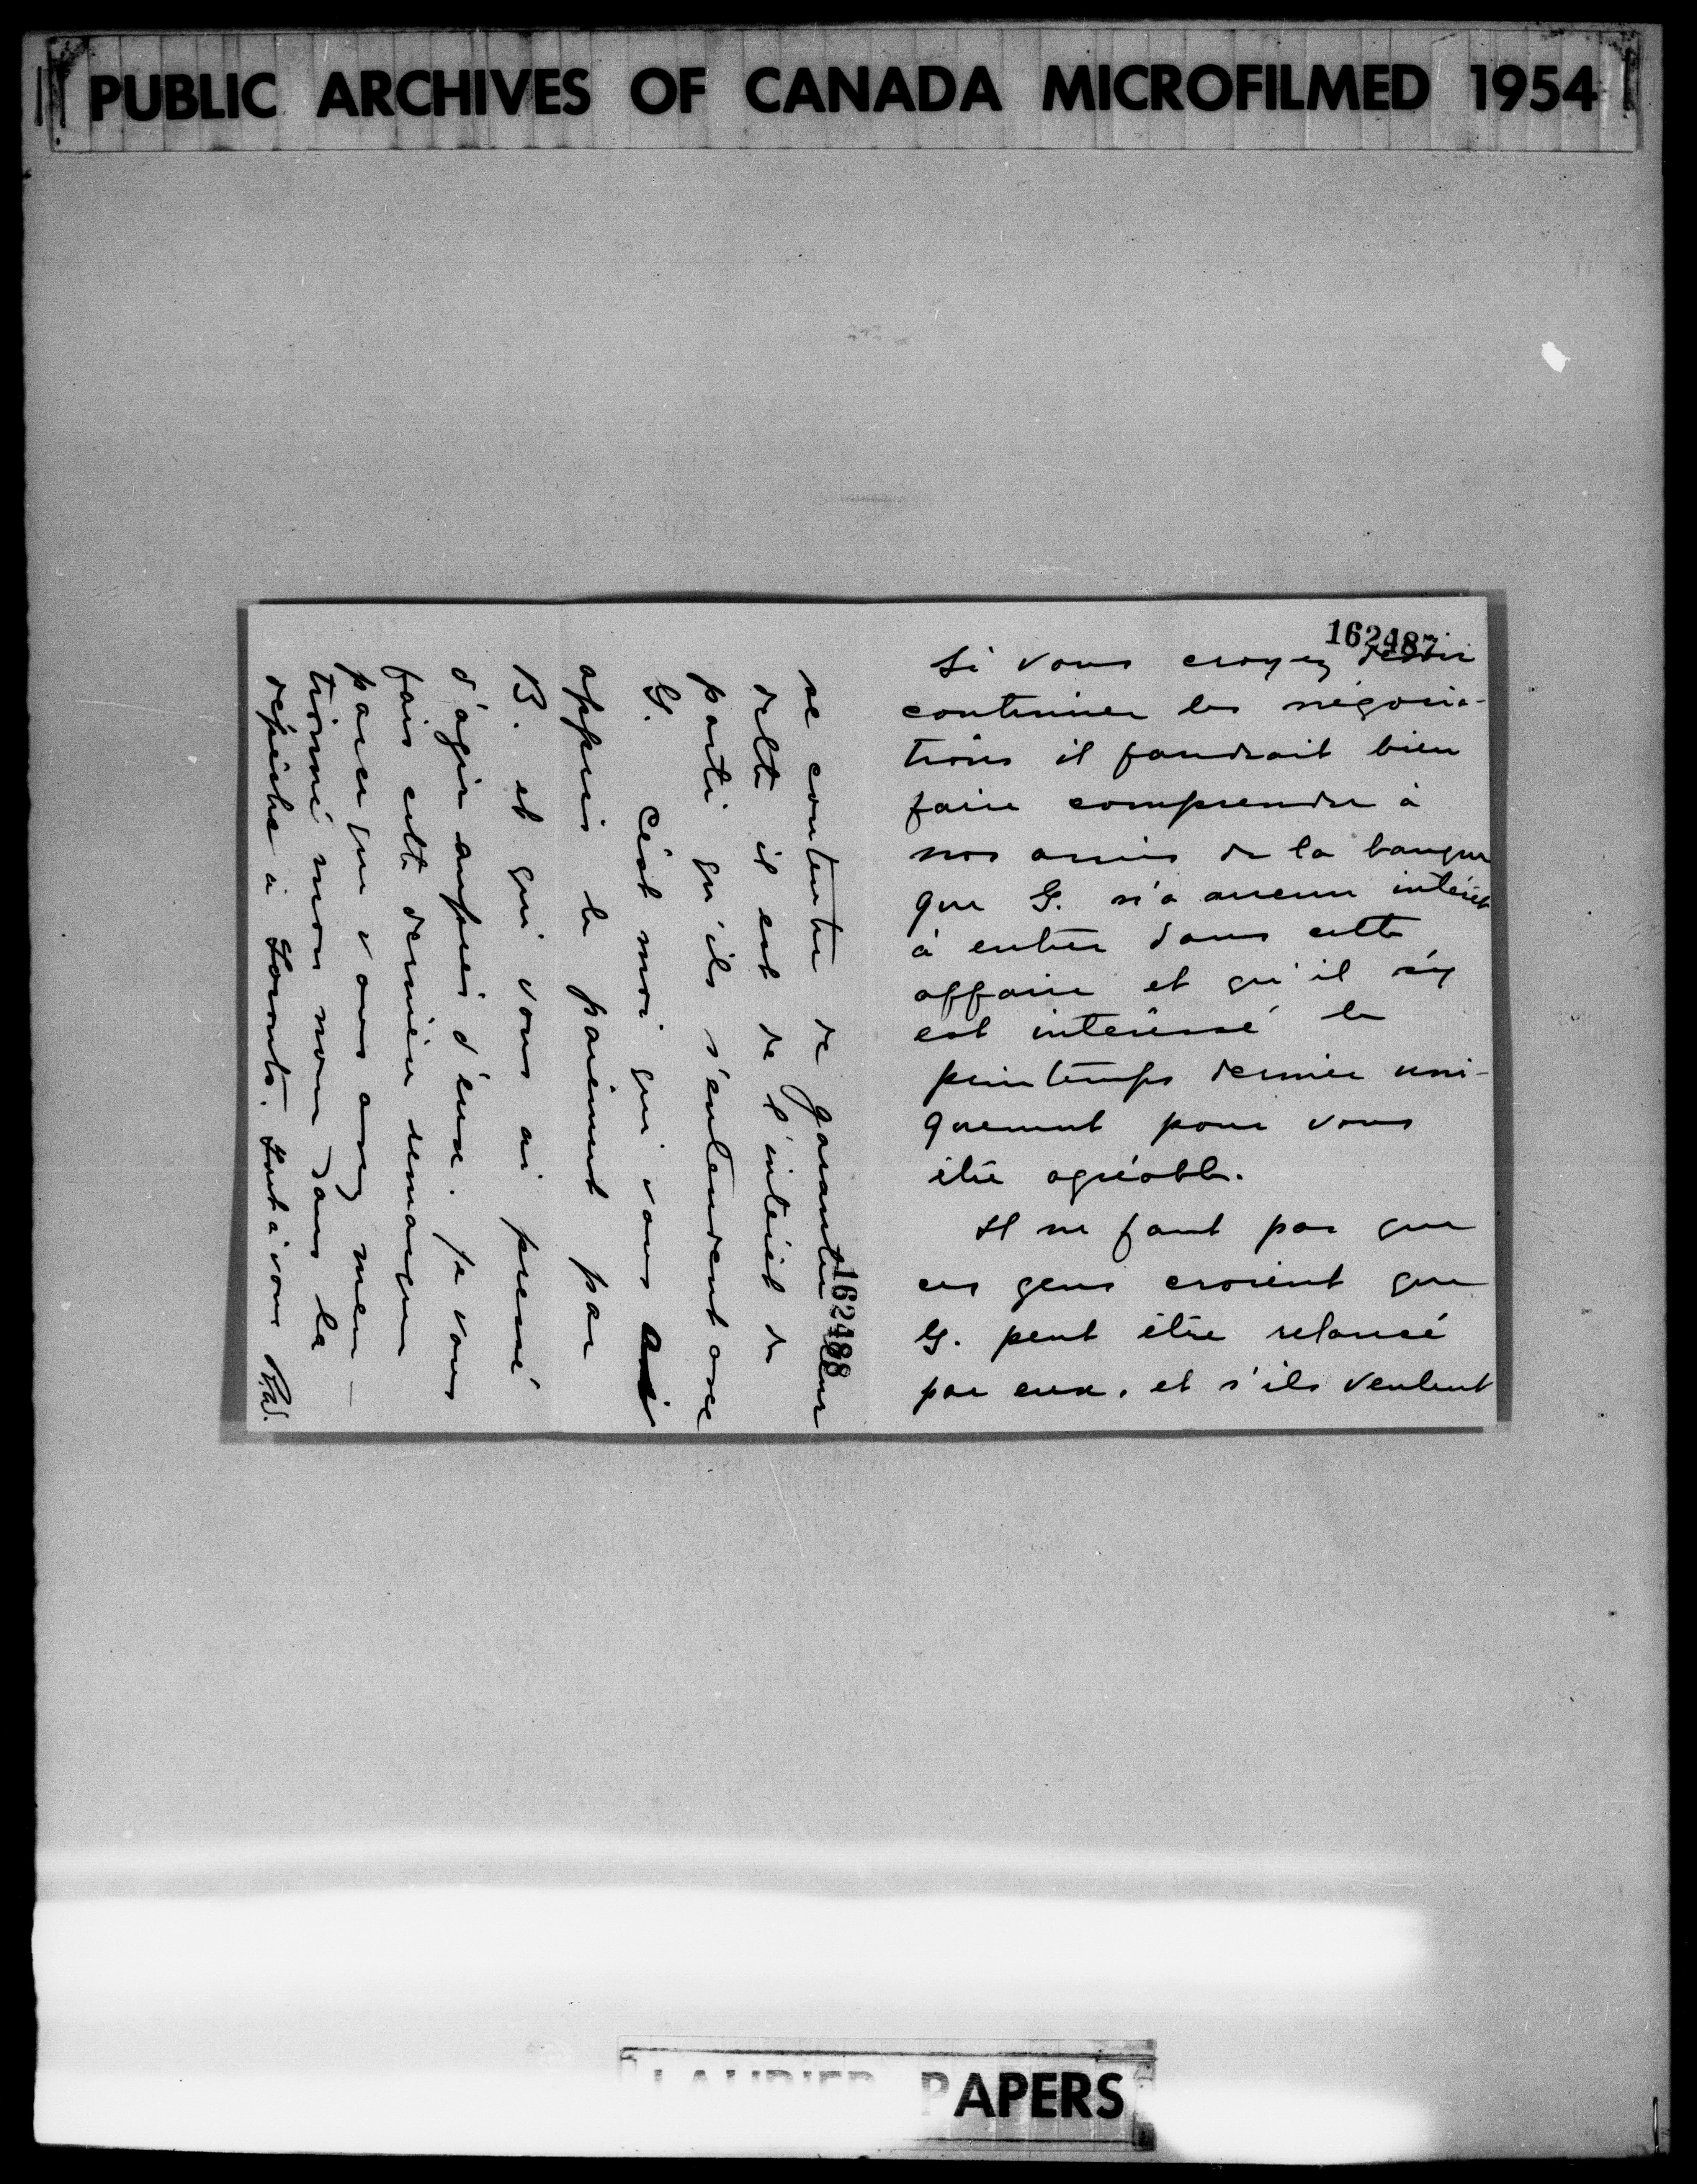 PUBLIC ARCHIVES OF CANADA MICROFILMED 1954
162487
Si vous croyez devoir
continuer les négocia-
tions il faudrait bien
faire comprendre à
nos amis de la banque
que G. n'a aucun intérêt
à entrer dans cette
affaire et qu'il s'y
est intéressé le
printemps dernier uni-
quement pour vous
être agréable.
Il ne faut pas que
ces gens croient que
G. peut être relancé
par eux, et s'ils veulent
162488
se contenter de garantir leur
dette il est de l'intérêt du
parti qu'ils s'entendent avec
G. C'est moi qui vous ai
appris le paiement par
B. et qui vous ai pressé
d'agir auprès d'eux. Je vous
fais cette dernière remarque
parce que vous avez men-
tionné mon nom dans la
dépêche à Toronto. Tout à vous
LAURIER PAPERS